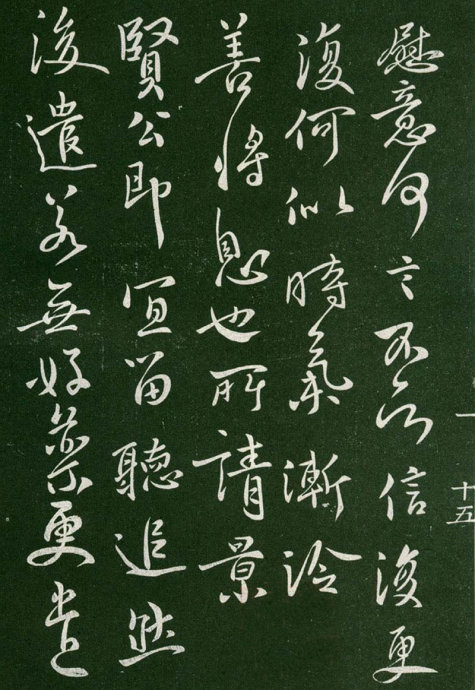 慰意何言不信復更
復何似時氣漸冷
善將息也所請景
賢公即宜留聽追然
後遣若無好更
十五